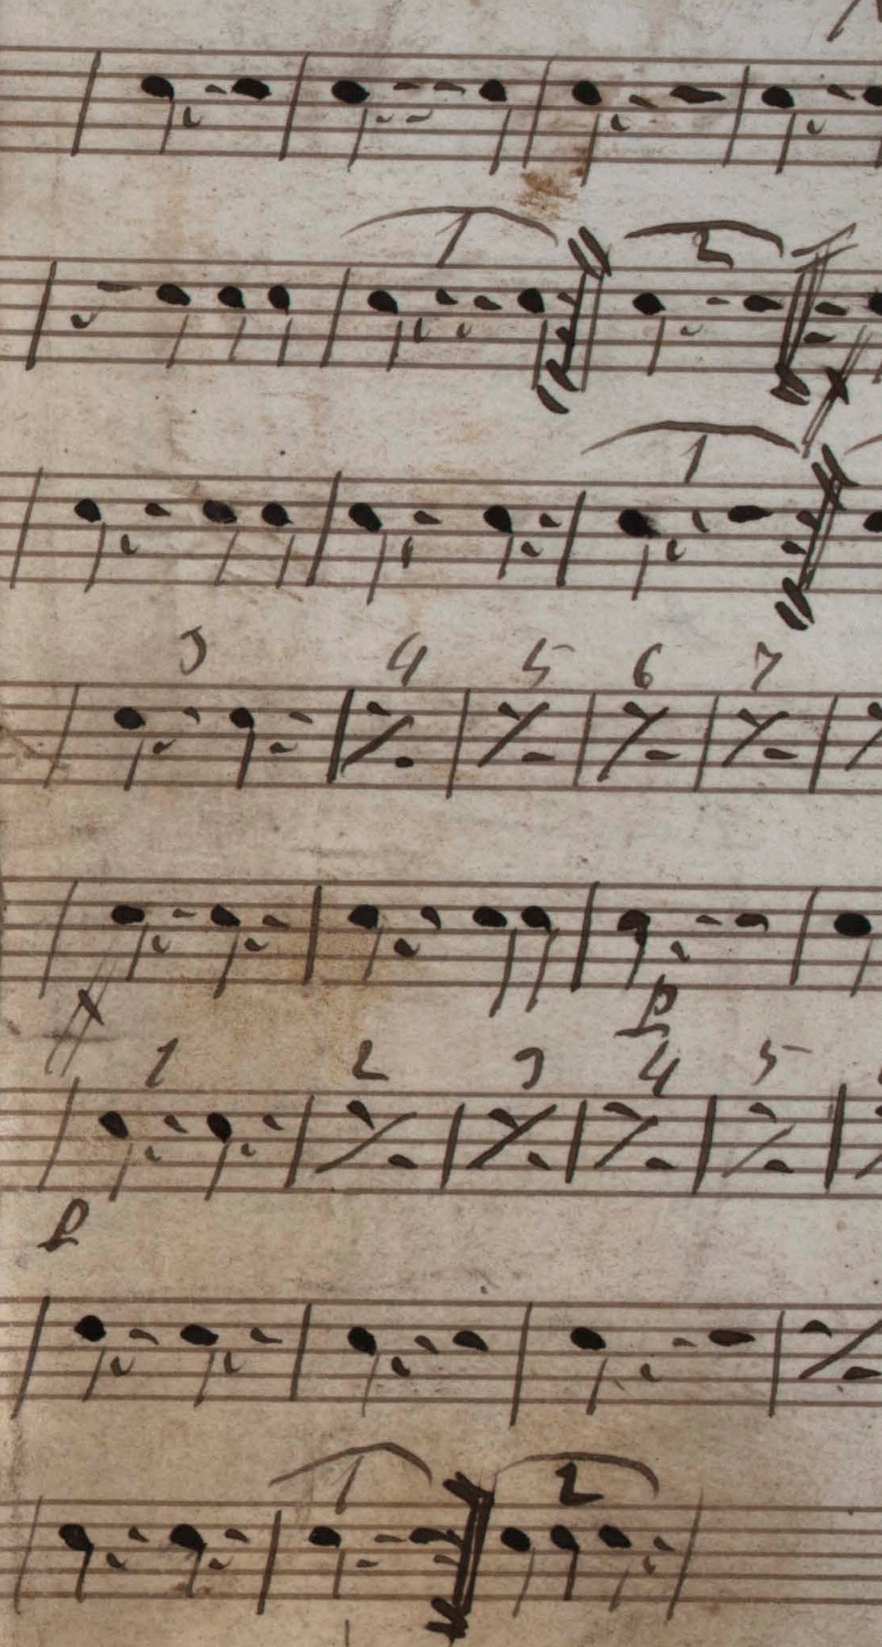 1 2
1
3 4 5 6 7
p
1 2 3 4 5
p
1 2